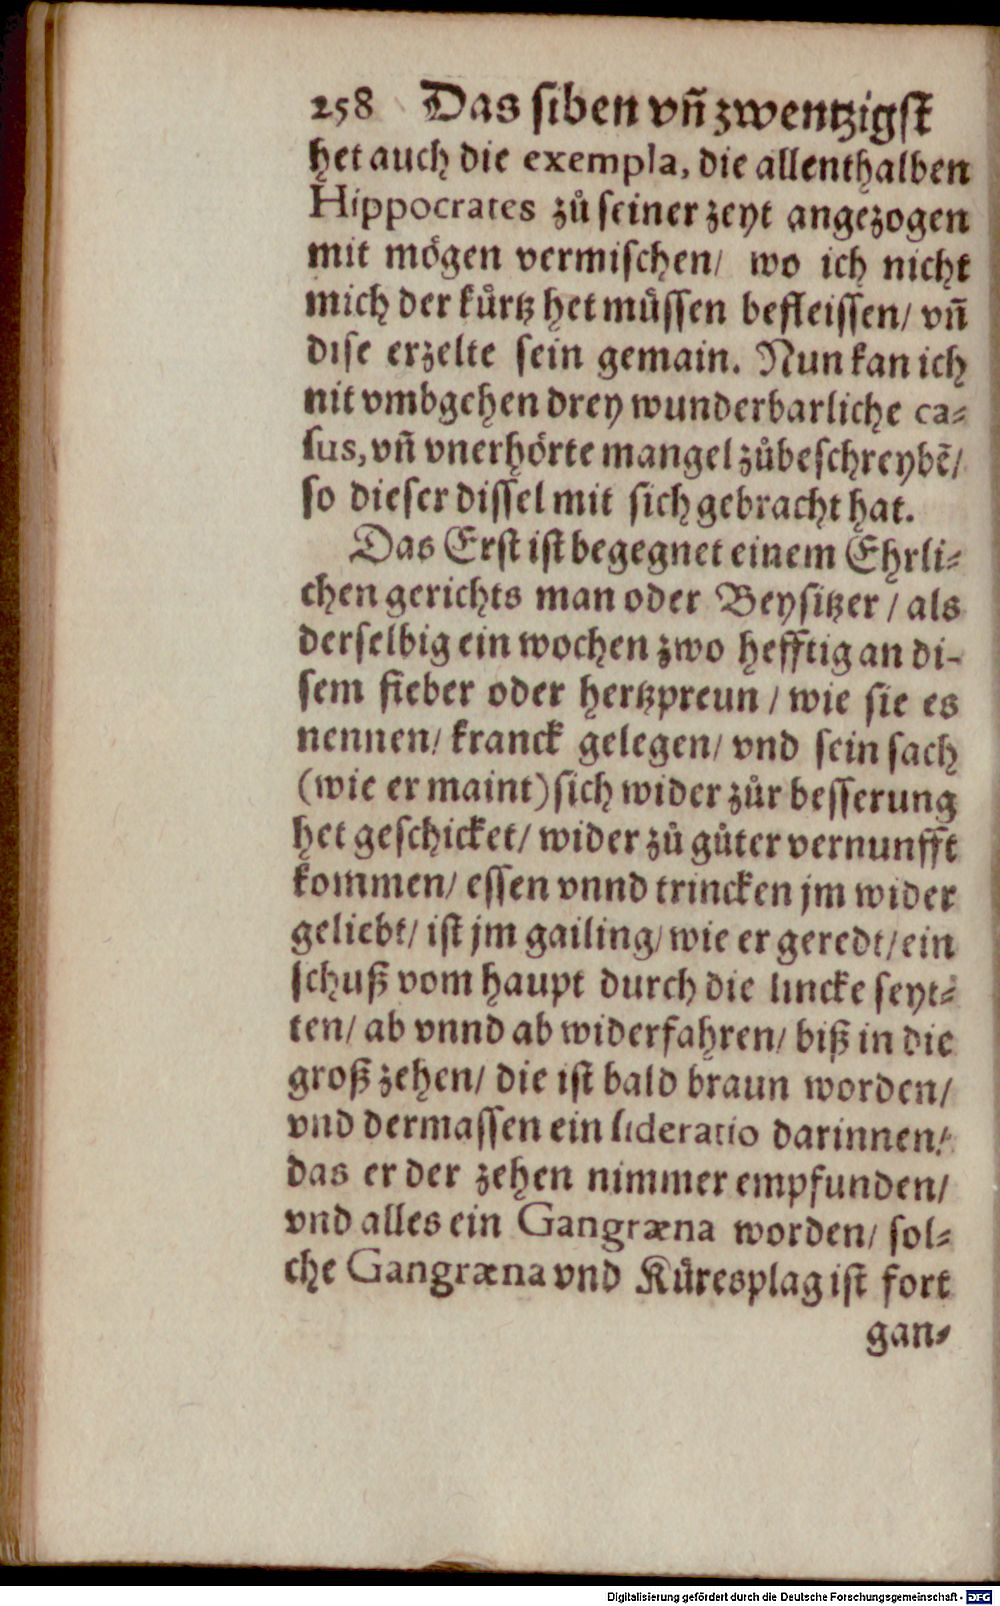 258 Das siben vñ zwentzigst
het auch die exempla, die allenthalben
Hippocrates zů seiner zeyt angezogen
mit mögen vermischen/ wo ich nicht
mich der kürtz het müssen befleissen/ vñ
dise erzelte sein gemain. Nun kan ich
nit vmbgehen drey wunderbarliche ca-
sus, vñ vnerhörte mangel zůbeschreybẽ/
so dieser dissel mit sich gebracht hat.
Das Erst ist begegnet einem Ehrli-
chen gerichts man oder Beysitzer / als
derselbig ein wochen zwo hefftig an di-
sem fieber oder hertzpreun / wie sie es
nennen/ kranck gelegen/ vnd sein sach
(wie er maint) sich wider zůr besserung
het geschicket/ wider zů gůter vernunfft
kommen/ essen vnnd trincken jm wider
geliebt/ ist jm gailing/ wie er geredt/ ein
schuß vom haupt durch die lincke seyt-
ten/ ab vnnd ab widerfahren/ biß in die
groß zehen/ die ist bald braun worden/
vnd dermassen ein sideratio darinnen/
das er der zehen nimmer empfunden/
vnd alles ein Gangræna worden/ sol-
che Gangræna vnd Küresplag ist fort
gan-
Digitalisierung gefördert durch die Deutsche Forschungsgemeinschaft - DFG